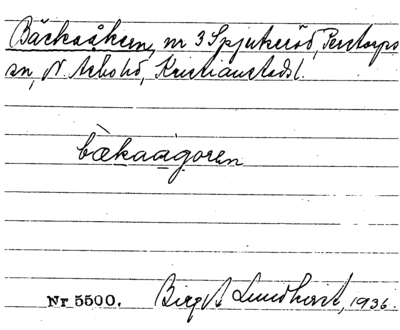 Bäckaåkern, nr 3 Spjutseröd, Perstorps
sn, N. Åsbo hd, Kristianstads l.
bækaagoren
Nr 5500. Birgit Lundkvist, 1936.